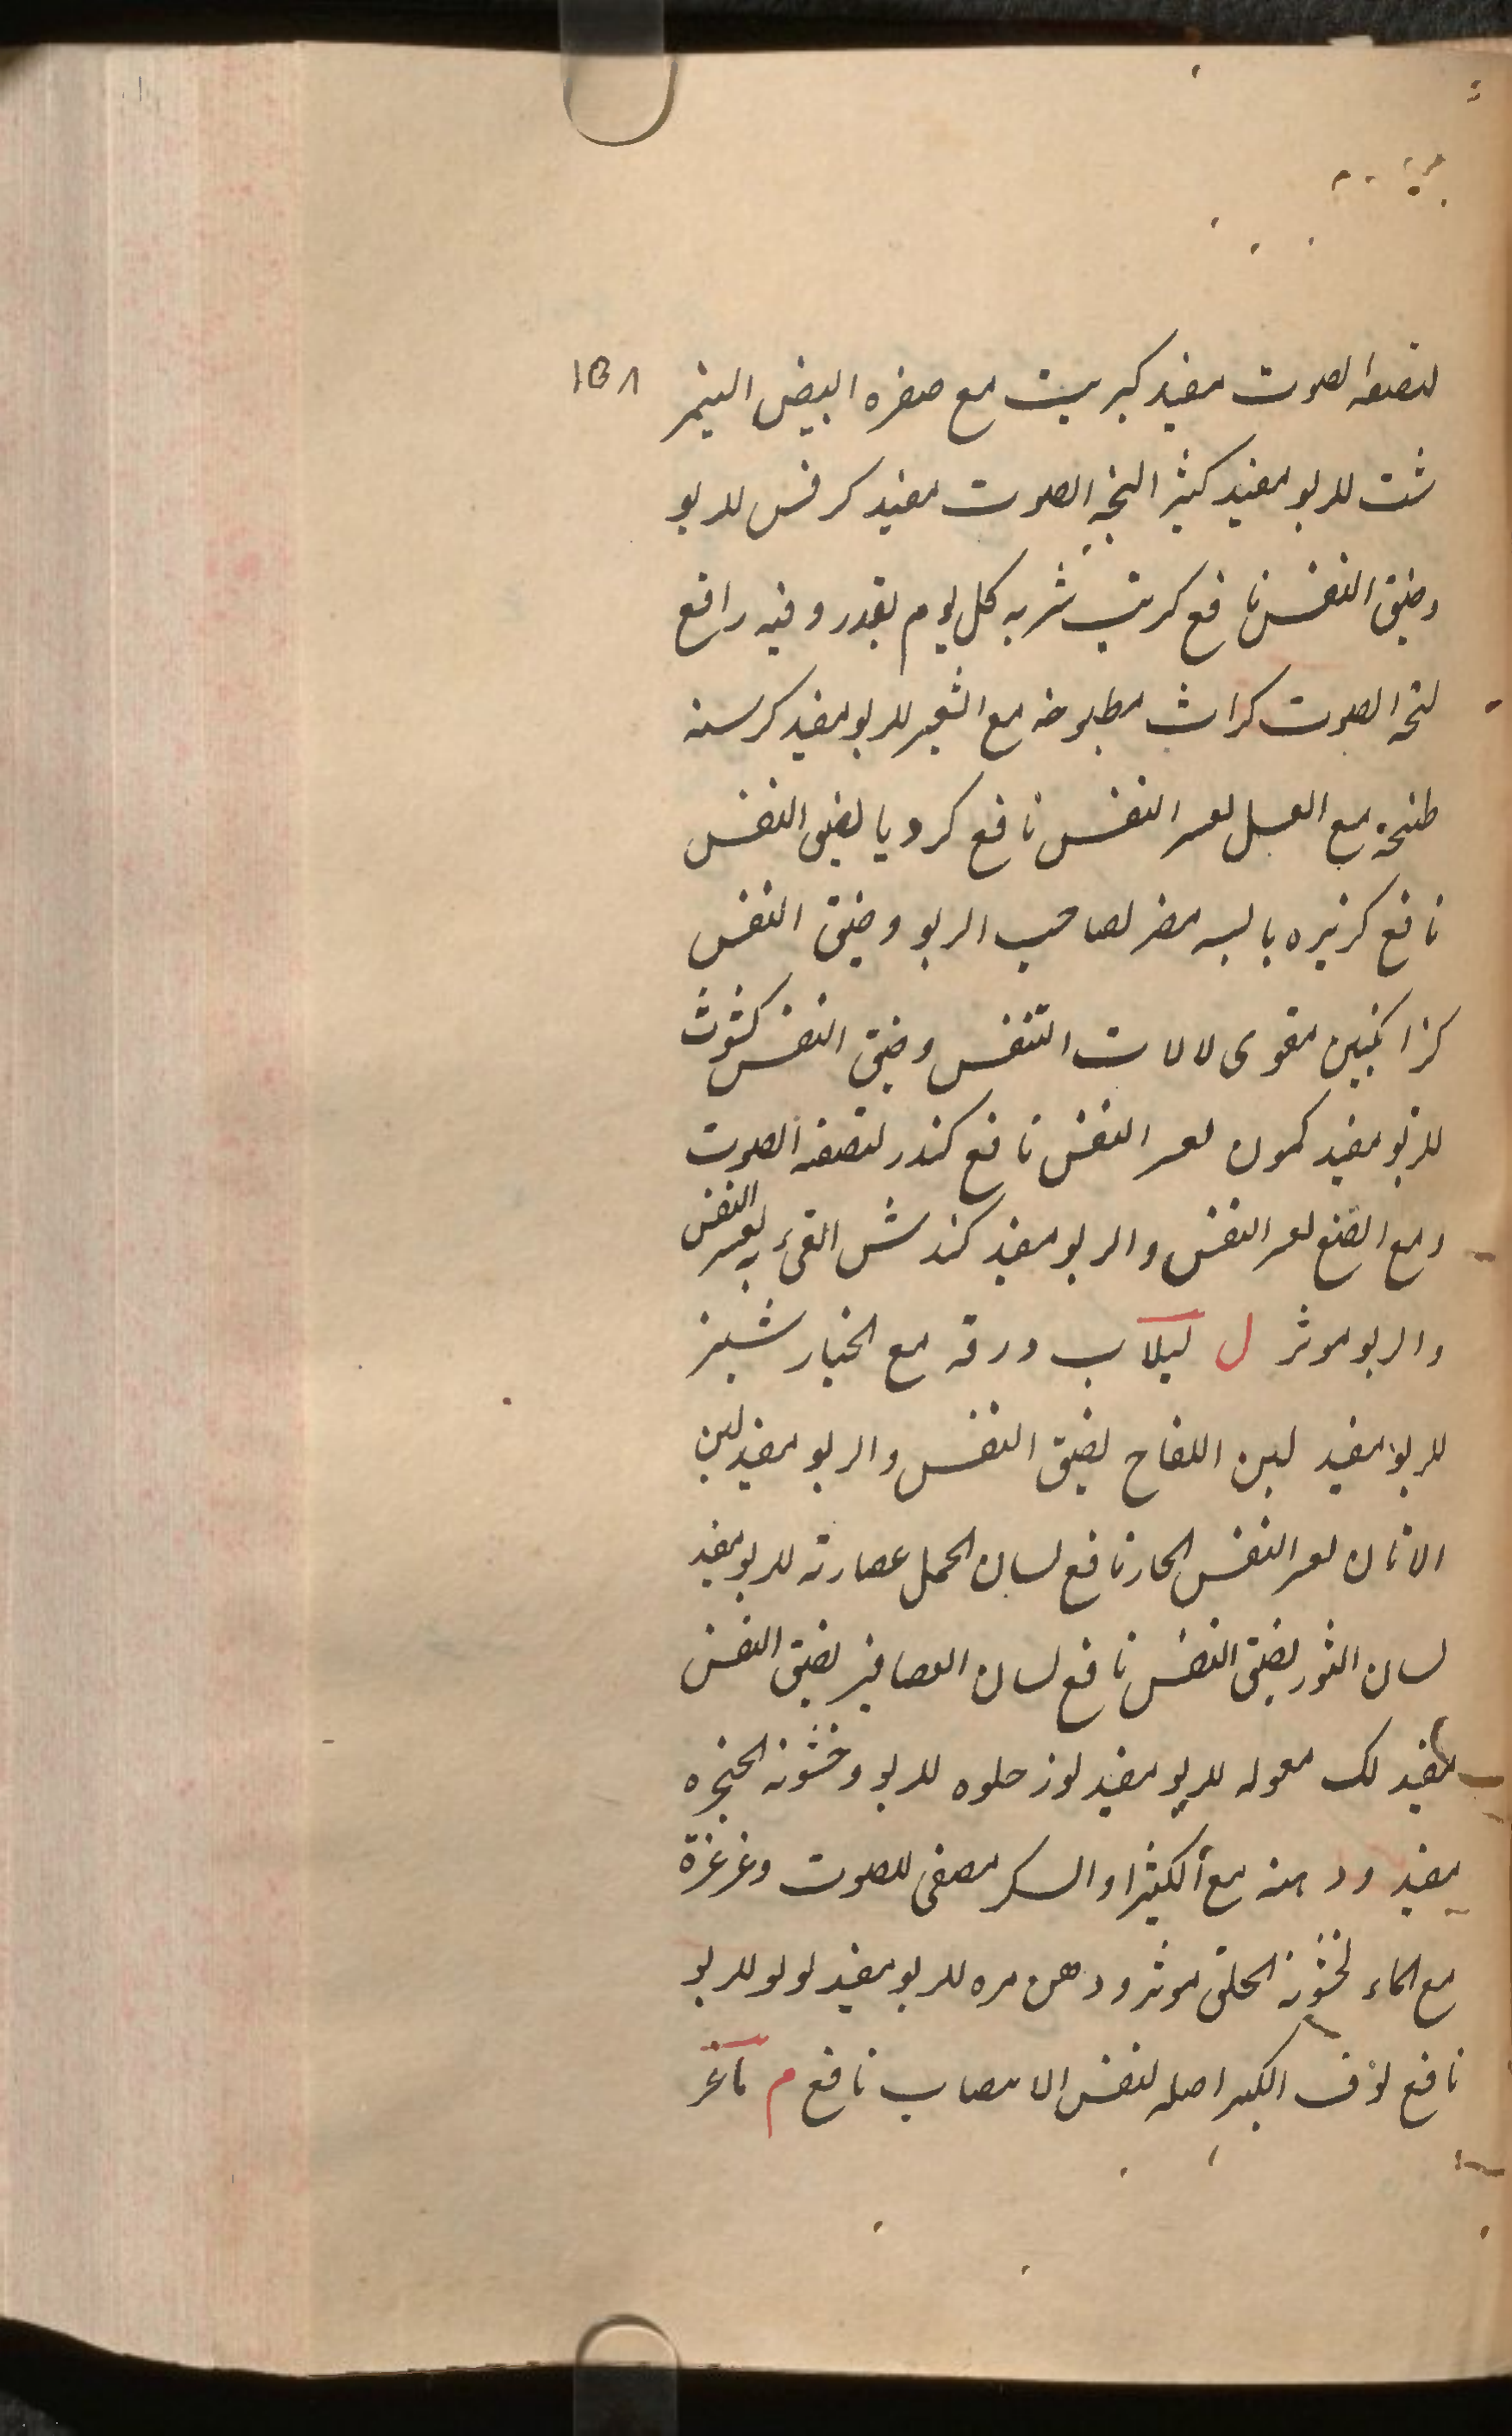 ١٥٨
لتصفیه الصوت مفید کبریت مع صفره البیض النیمر
شت للربو مفید کثیرا لبحه الصوت مفید کرفس للربو
وضیق النفس نافع کرنب شربه کل یوم بقدر وقیه رافع
لبحه الصوت کراث مطبوخه مع الشعیر للربو مفید کرسنه
طبخه مع العسل لعسر النفس نافع کرویا لضیق النفس
نافع کزبره یابسه مضر لصاحب الربو وضیق النفس
کزانکبین مقوی لالات التنفس وضیق النفس کشوث
للربو مفید کمون لعسر النفس نافع کندر لتصفیه الصوت
ومع الصمغ لعسر النفس والربو مفید کندش القیء به لعسر النفس
والربو موثر ل لبلاب ورقه مع الخیار شنبر
للربو مفید لبن اللقاح لضیق النفس والربو مفید لبن
الاتان لعسر النفس الحار نافع لسان الحمل عصارته للربو مفید
لسان الثور لضیق النفس نافع لسان العصافیر لضیق النفس
مفید لک مغسوله للربو مفید لوز حلوه للربو وخشونه الحنجره
مفید ودهنه مع الکثیرا والسکر مصفی للصوت وغرغرة
مع الماء لخشونه الحلق موثر ودهن مره للربو مفید لولو للربو
نافع لوف الکبیر اصله لنفس الانتصاب نافع م ماغر